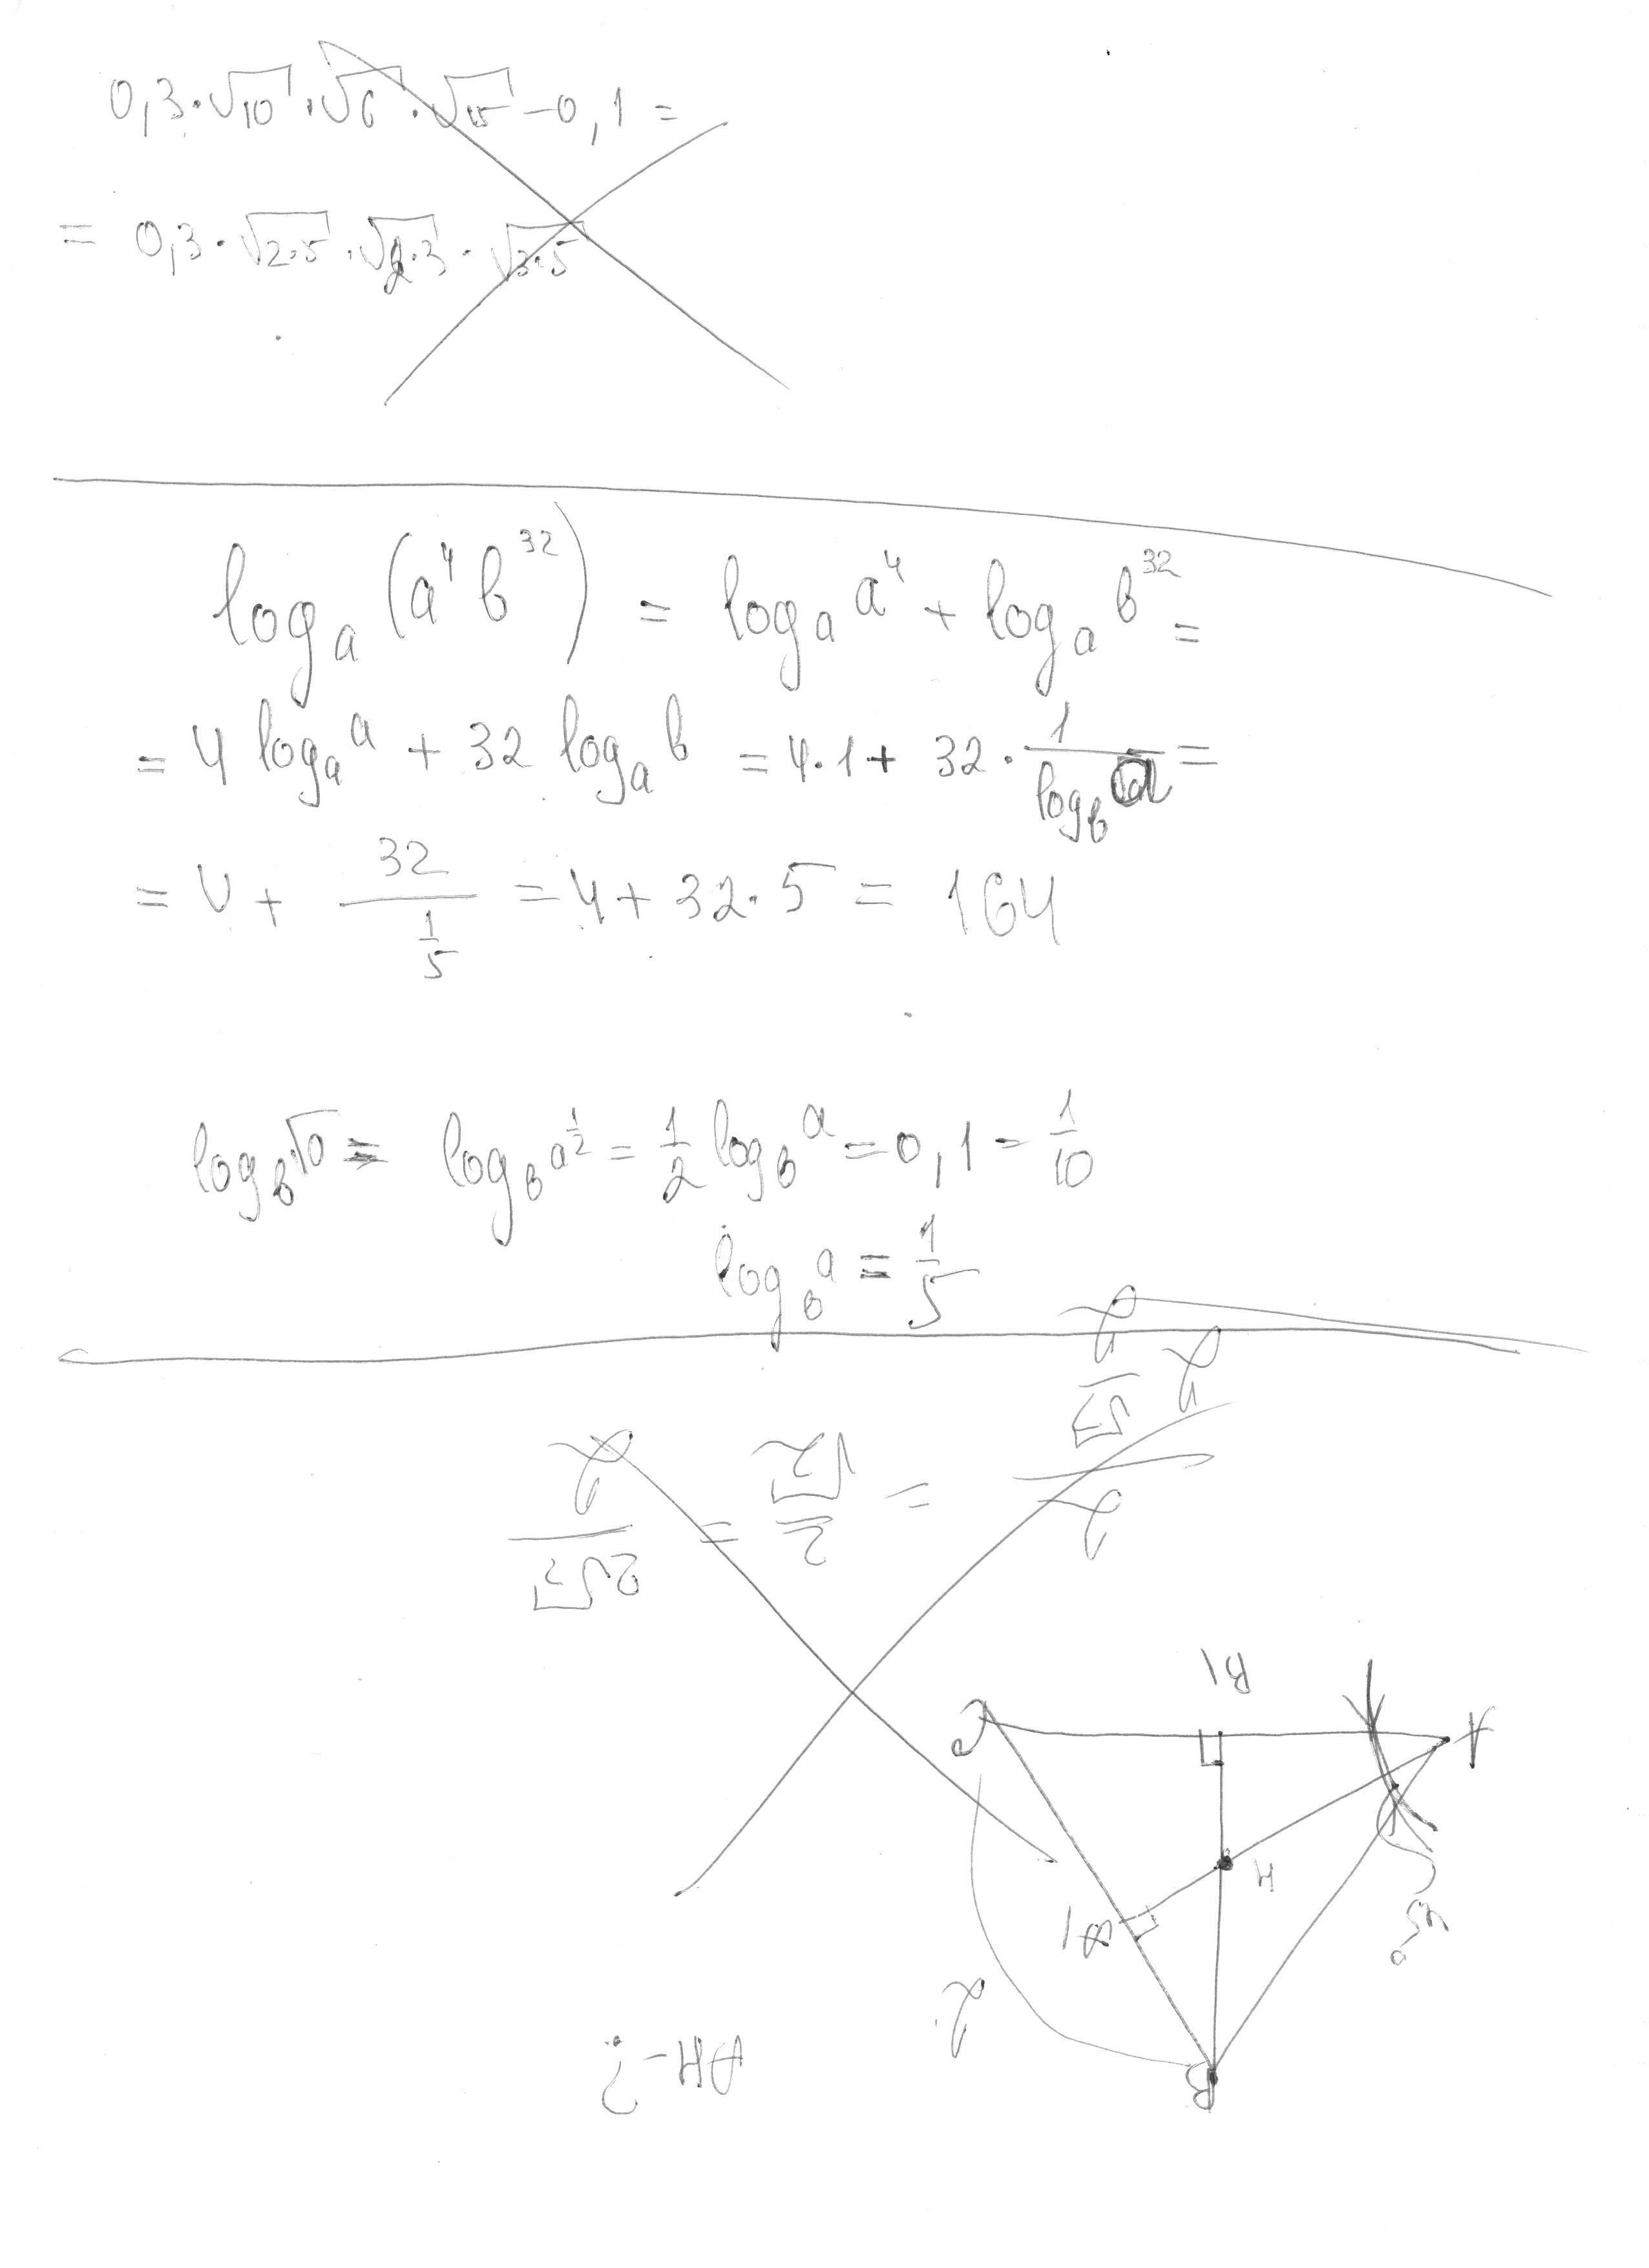 0,3·√10·√6·√15-0,1=
= 0,3·√2·5·√2·3·√3·5
log_a (a⁴b³²) = log_a a⁴ + log_a b³² =
= 4 log_a a + 32 log_a b = 4·1 + 32·1/log_b a =
= 4 + 32/(1/5) = 4 + 32·5 = 164
log_b √a = log_b a^(1/2) = 1/2 log_b a = 0,1 = 1/10
log_b a = 1/5
AH-?
B
2
45°
B1
H
A
C
= 2/√2 = 2√2/2